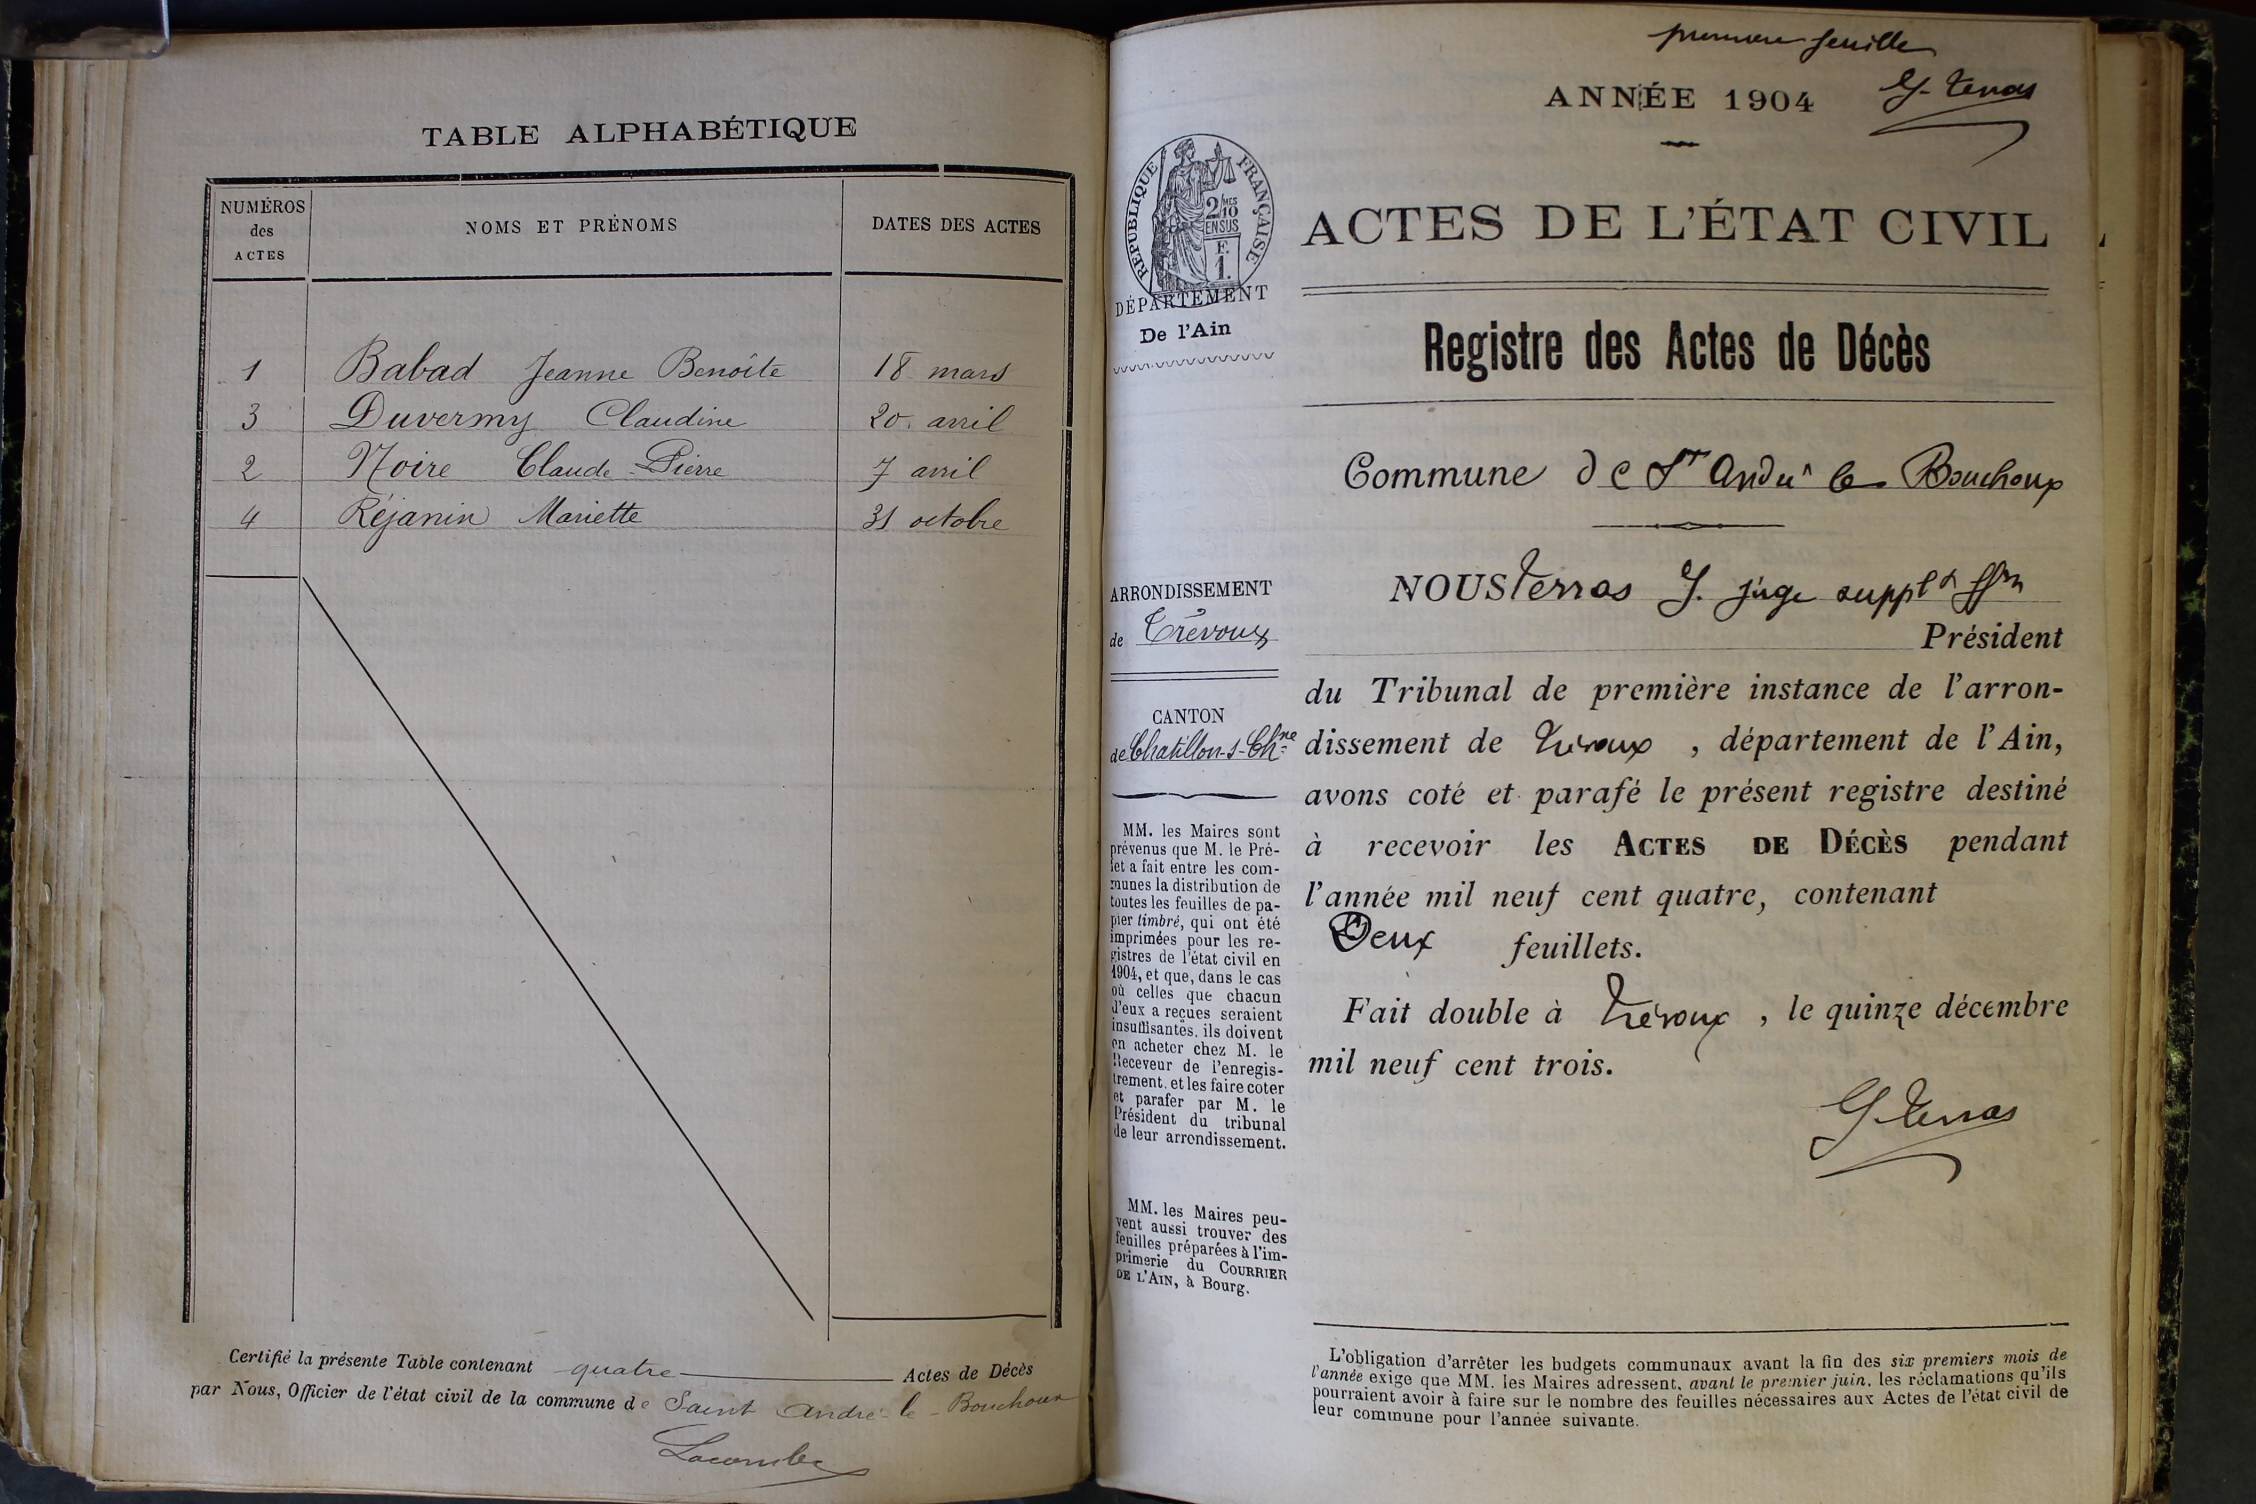 TABLE ALPHABÉTIQUE
NUMÉROS des ACTES
NOMS ET PRÉNOMS
DATES DES ACTES
1 Babad Jeanne Benoîte 18 mars
3 Duvermy Claudine 20 avril
2 Noire Claude-Pierre 7 avril
4 Réjanin Mariette 31 octobre
Certifié la présente Table contenant quatre Actes de Décès
par Nous, Officier de l'état civil de la commune de Saint André-le-Bouchoux
Lacombe
première feuille
G. Terras
ANNÉE 1904
RÉPUBLIQUE FRANÇAISE
2/10 MES
EN SUS
F.
1.
DÉPARTEMENT
De l'Ain
ARRONDISSEMENT
de Trévoux
CANTON
de Chatillon-s-Ch.ne
MM. les Maires sont
prévenus que M. le Pré-
fet a fait entre les com-
munes la distribution de
toutes les feuilles de pa-
pier timbré, qui ont été
imprimées pour les re-
gistres de l'état civil en
1904, et que, dans le cas
où celles que chacun
d'eux a reçues seraient
insuffisantes, ils doivent
en acheter chez M. le
Receveur de l'enregis-
trement, et les faire coter
et parafer par M. le
Président du tribunal
de leur arrondissement.
MM. les Maires peu-
vent aussi trouver des
feuilles préparées à l'im-
primerie du COURRIER
DE L'AIN, à Bourg.
ACTES DE L'ÉTAT CIVIL
Registre des Actes de Décès
Commune de St André le Bouchoux
NOUS Terras G. juge suppl.t ff.on
Président
du Tribunal de première instance de l'arron-
dissement de Trévoux, département de l'Ain,
avons coté et parafé le présent registre destiné
à recevoir les ACTES DE DÉCÈS pendant
l'année mil neuf cent quatre, contenant
Deux feuillets.
Fait double à Trévoux, le quinze décembre
mil neuf cent trois.
G. Terras
L'obligation d'arrêter les budgets communaux avant la fin des six premiers mois de
l'année exige que MM. les Maires adressent, avant le premier juin, les réclamations qu'ils
pourraient avoir à faire sur le nombre des feuilles nécessaires aux Actes de l'état civil de
leur commune pour l'année suivante.